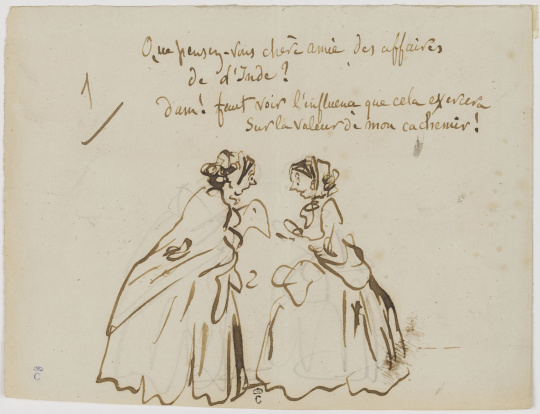 Que pensez-vous chère amie des affaires
de d'Inde?
Dam! faut voir l'influence que cela exercera
Sur la valeur de mon cachemir!
1
2
C
C